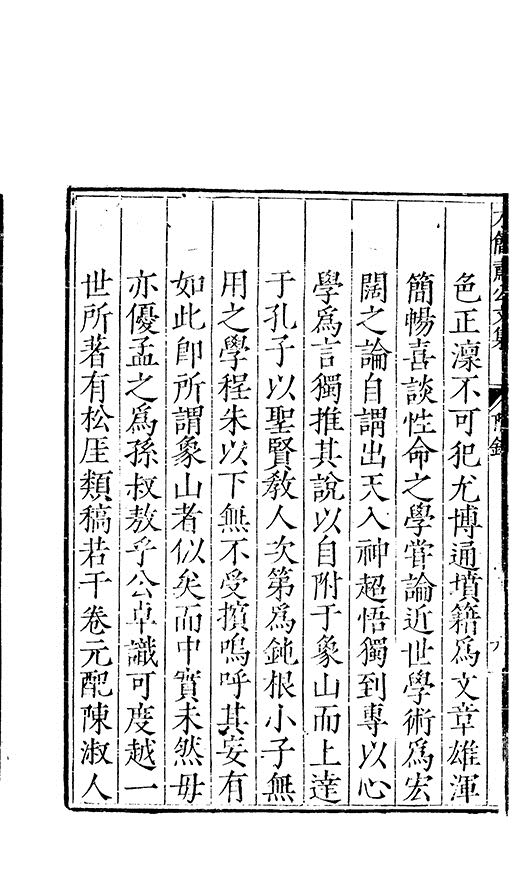 色正凜不可犯尤博通墳籍爲文章雄渾
簡暢喜談性命之學甞論近世學術爲宏
闊之論自謂出天入神超悟獨到專以心
學爲言獨推其說以自附于象山而上達
于孔子以聖賢敎人次第爲鈍根小子無
用之學程朱以下無不受擯嗚呼其妄有
如此卽所謂象山者似矣而中實未然毋
亦優孟之爲孫叔敖乎公卓識可度越一
世所著有松厓類稿若干卷元配陳淑人